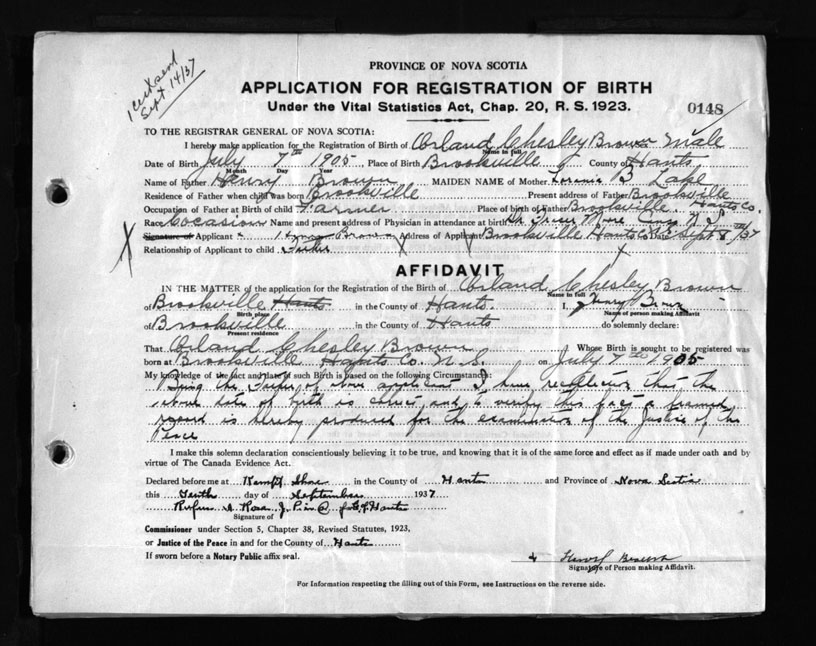 1 Cert send
Sept. 14/37
PROVINCE OF NOVA SCOTIA
APPLICATION FOR REGISTRATION OF BIRTH
Under the Vital Statistics Act, Chap. 20, R. S. 1923.
0148
TO THE REGISTRAR GENERAL OF NOVA SCOTIA:
I hereby make application for the Registration of Birth of Orland Chesley Brown Male
Name in full
Date of Birth July 7th 1905 Place of Birth Brookville County of Hants
Month Day Year
Name of Father Henry Brown MAIDEN NAME of Mother B. Lake
Residence of Father when child was born Brookville Present address of Father Brookville
Occupation of Father at Birth of child Farmer Place of birth of Father Brookville Hants Co.
Race Cocasion Name and present address of Physician in attendance at birth Dr. N. S
Signature of Applicant Henry Brown Address of Applicant Brookville Hants Co Date Sept 8th/37
Relationship of Applicant to child Father
AFFIDAVIT
IN THE MATTER of the application of the Registration of the Birth of Orland Chesley Brown
Name in full
of Brookville Hants in the County of Hants. I, Henry Brown
Birth place Name of person making Affidavit
of Brookville in the County of Hants do solemnly declare:
Present residence
That Orland Chesley Brown Whose Birth is sought to be registered was
born at Brookville Hants Co. N.S. on July 7th 1905
My knowledge of the fact and date of such Birth is based on the following Circumstances:
Being the Father of above applicant I have recollection that the
above date of birth is correct and to verify this fact a framed
record is hereby produced for the examination of the Justice of the
Peace
I make this solemn declaration conscientiously believing it to be true, and knowing that it is of the same force and effect as if made under oath and by
virtue of The Canada Evidence Act.
Declared before me at Kempt Shore in the County of Hants and Province of Nova Scotia
this Tenth day of September 1937
Rufus A Rose J. P. in @ for Co of Hants
Signature of
Commissioner under Section 5, Chapter 38, Revised Statutes, 1923,
or Justice of the Peace in and for the County of Hants
If sworn before a Notary Public affix seal.
Henry Brown
Signature of Person making Affidavit.
For Information respecting the filling out of this Form, see Instructions on the reverse side.